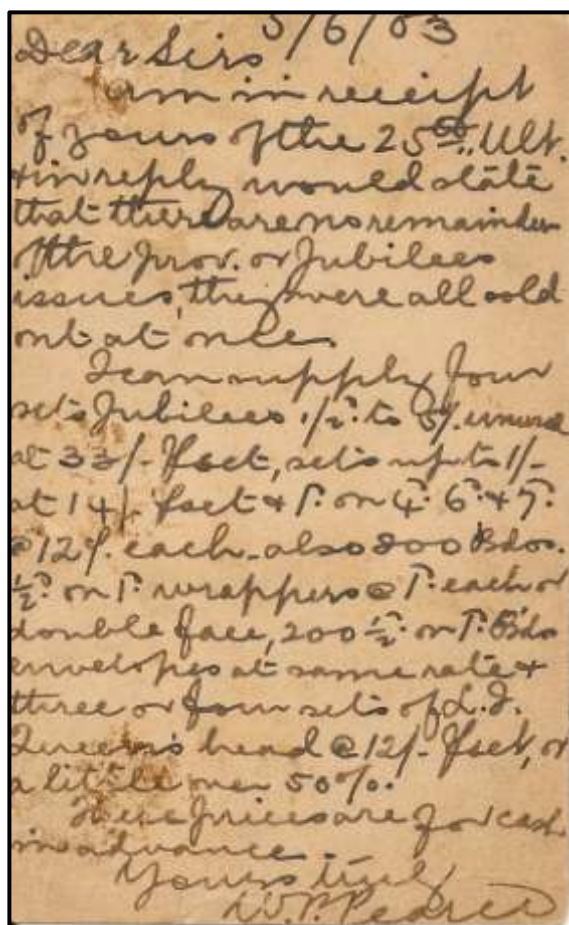 5/6/03
Dear Sirs
am in receipt
of yours of the 25th Ult.
& in reply would state
that there are no remainders
of the prov. or Jubilees
issues, they were all sold
out at once.
I can supply four
sets Jubilees 1/2d. to 5/. unused
at 33/- P set, sets up to 1/-
at 14/. P set & 1d. on 4d. 6d. & 5d.
@ 12/. each - also 200 Bdos.
1/2d. on 1d. wrappers @ 1d. each or
double face, 200 1/2d. on 1d. Bdos
envelopes at same rate &
three or four sets of L.I.
Queen's head @ 12/- P set, or
a little over 50%.
These prices are for cash
in advance.
Yours truly
W.P. Pearce